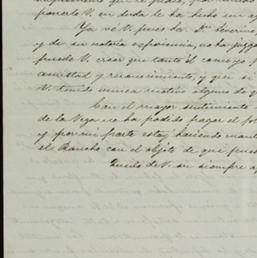 ponerlo V. en duda le ha hecho en
Ya vé V. pues Sr. Dn. Severino,
y de su notoria suficiencia, no ha juzga
puede V. creer que tanto él como yo
amistad y reconocimiento, y que si
V. tenido nunca motivo alguno de
Con el mayor sentimiento
de la Vega no ha podido pagar el
y por mi parte estoy haciendo
el Rancho con el objeto de que
Quedo de V. su siempre